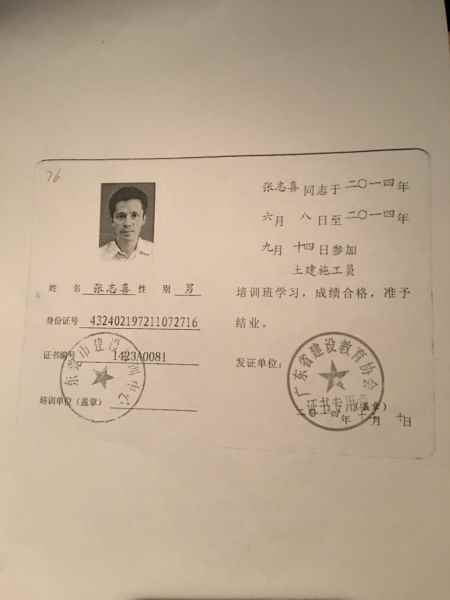 76
姓 名 张志喜 性 别 男
身份证号 432402197211072716
证书编号 1423A0081
培训单位(盖章)
东莞市建设
张志喜 同志于 二〇一四 年
六 月 八 日至 二〇一四 年
九 月 十四 日参加
土建施工员
培训班学习，成绩合格，准予
结业。
发证单位:
广东省建设教育协会
证书专用
(盖章)
年 十 月 十 日